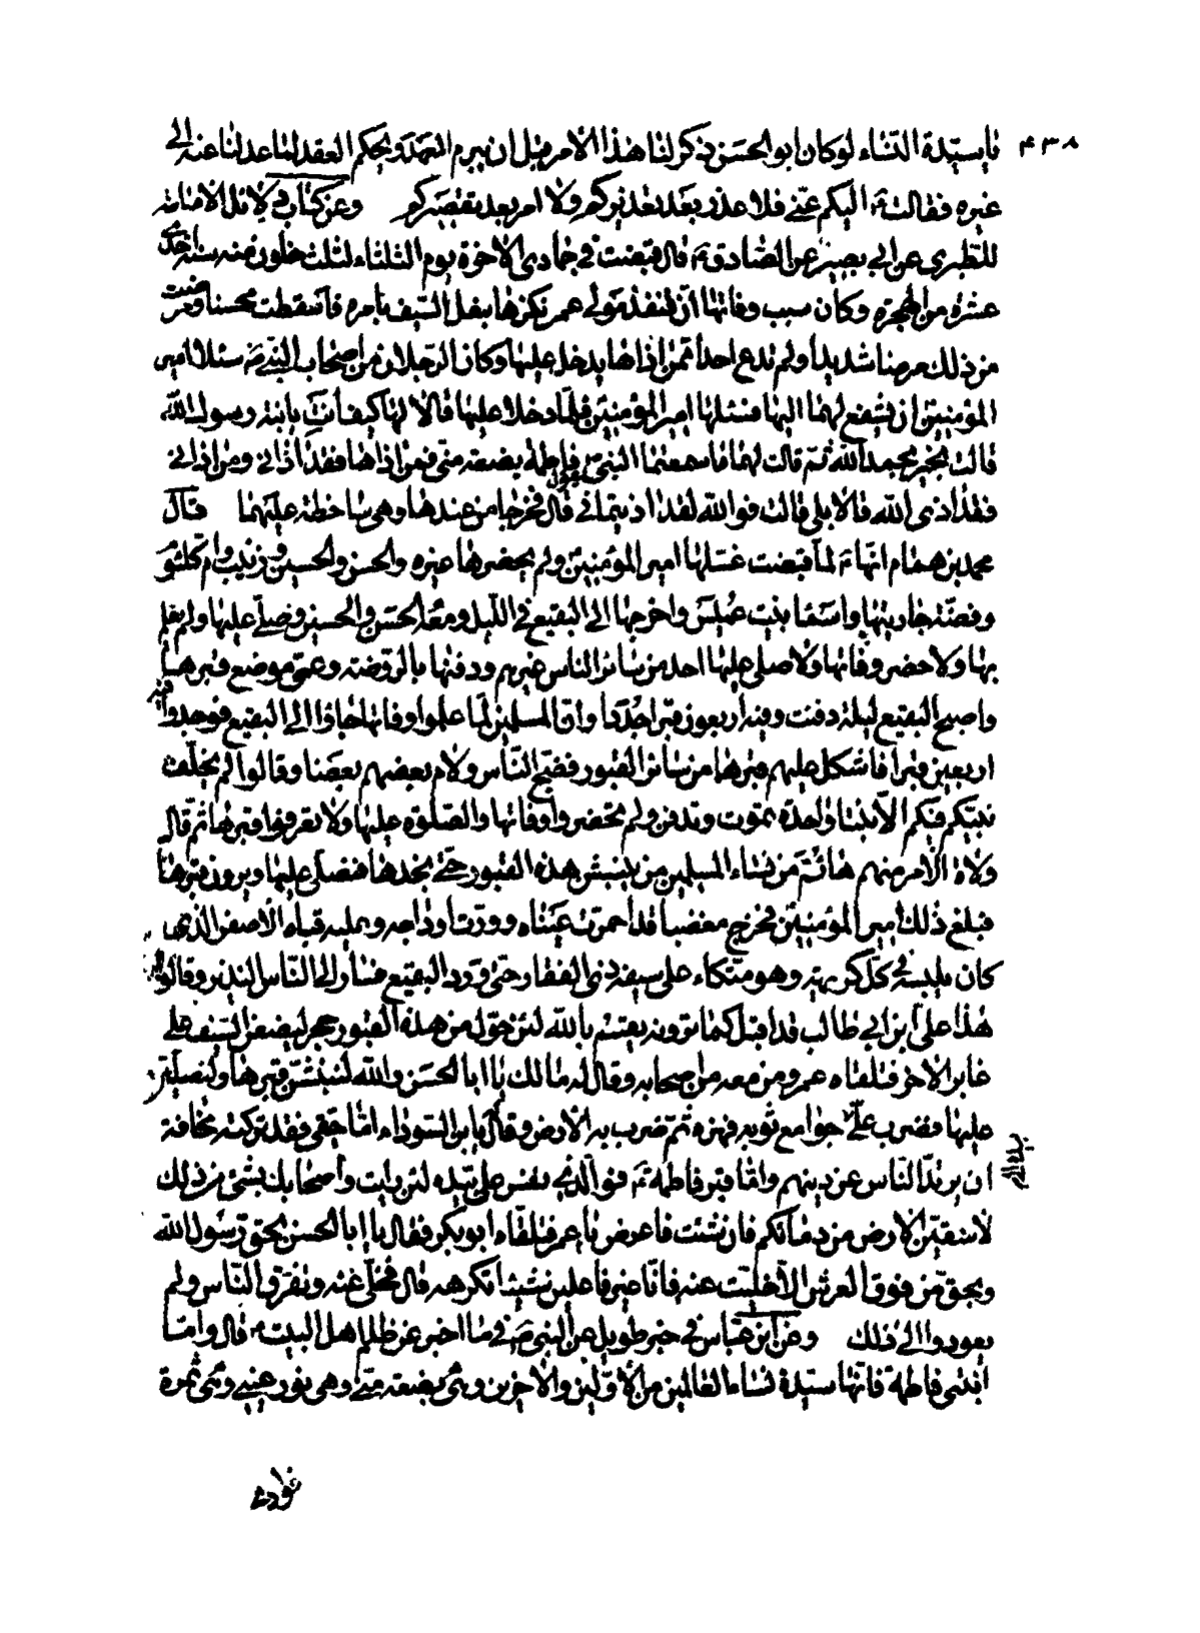 ٤٣٨
يا سيدة النساء لو كان ابو الحسن ذكر لنا هذا الامر قبل ان نبرم العهد ونحكم العقد لما عدلنا عنه الى
غيره فقالت ع اليكم عنى فلا عذر بعد تعذيركم ولا امر بعد تقصيركم وعن كتاب دلائل الامامة
للطبرى عن ابى بصير عن الصادق ع قال قبضت فى جمادى الاخرة يوم الثلثاء لثلث خلون منه سنة احدى
عشرة من الهجرة وكان سبب وفاتها ان قنفذ مولى عمر نكزها بنعل السيف بامره فاسقطت محسنا ومرضت
من ذلك مرضا شديدا ولم تدع احدا ممن اذاها يدخل عليها وكان الرجلان من اصحاب النبى ص سئلا امير
المؤمنين ان يشفع لهما اليها فسئلها امير المؤمنين فلما دخلا عليها قالا لها كيف انت يا بنة رسول الله
قالت بخير بحمد الله ثم قالت لهما ما سمعتما النبى يقول فاطمة بضعة منى فمن اذاها فقد اذانى ومن اذانى
فقد اذى الله قالا بلى قالت فوالله لقد اذيتمانى قال فخرجا من عندها وهى ساخطة عليهما قال
محمد بن همام انها ع لما قبضت غسلها امير المؤمنين ولم يحضرها غيره والحسن والحسين وزينب وام كلثوم
وفضة جاريتها واسما بنت عميس واخرجها الى البقيع فى الليل ومعه الحسن والحسين وصلى عليها ولم يعلم
بها ولا حضر وفاتها ولا صلى عليها احد من سائر الناس غيرهم ودفنها بالروضة وعمى موضع قبرها
واصبح البقيع ليلة دفنت وفيه اربعون قبرا جددا وان المسلمين لما علموا وفاتها جاؤا الى البقيع فوجدوا فيه
اربعين قبرا فاشكل عليهم قبرها من سائر القبور فضج الناس ولام بعضهم بعضا وقالوا لم يخلف
نبيكم فيكم الا بنتا واحدة تموت وتدفن ولم تحضروا وفاتها والصلوة عليها ولا تعرفوا قبرها ثم قال
ولاة الامر منهم هاتم من نساء المسلمين من ينبش هذه القبور حتى نجدها فنصلى عليها ونزور قبرها
فبلغ ذلك امير المؤمنين فخرج مغضبا قد احمرت عيناه ودرت اوداجه وعليه قباه الاصفر الذى
كان يلبسه فى كل كريهة وهو متكاء على سيفه ذى الفقار حتى ورد البقيع فسار الى الناس النذير وقالوا
هذا على بن ابى طالب قد اقبل كما ترونه يقسم بالله لئن حول من هذه القبور حجر ليضعن السيف على
غابر الاخر فتلقاه عمر ومن معه من اصحابه وقال له مالك يا ابا الحسن والله لننبشن قبرها ولنصلين
عليها فضرب على ع جوامع ثوبه فهزه ثم ضرب به الارض وقال يا بن السوداء اما حقى فقد تركته مخافة
ان يرتد الناس عن دينهم واما قبر فاطمة ع فوالذى نفس على بيده لئن رايت واصحابك بشئ من ذلك
لاسقين الارض من دمائكم فان شئت فاعرض يا عمر فتلقاه ابو بكر فقال يا ابا الحسن بحق رسول الله
وبحق من فوق العرش الا خليت عنه فانا غير فاعلين شيئا تكرهه قال فخلى عنه وتفرق الناس ولم
يعودوا الى ذلك وعن ابن عباس فى خبر طويل عن النبى ص فى ما اخبر عن ظلم اهل البيت ع قال واما
ابنتى فاطمة فانها سيدة نساء العالمين من الاولين والاخرين وهى بضعة منى وهى نور عينى وهى ثمرة
فؤادى